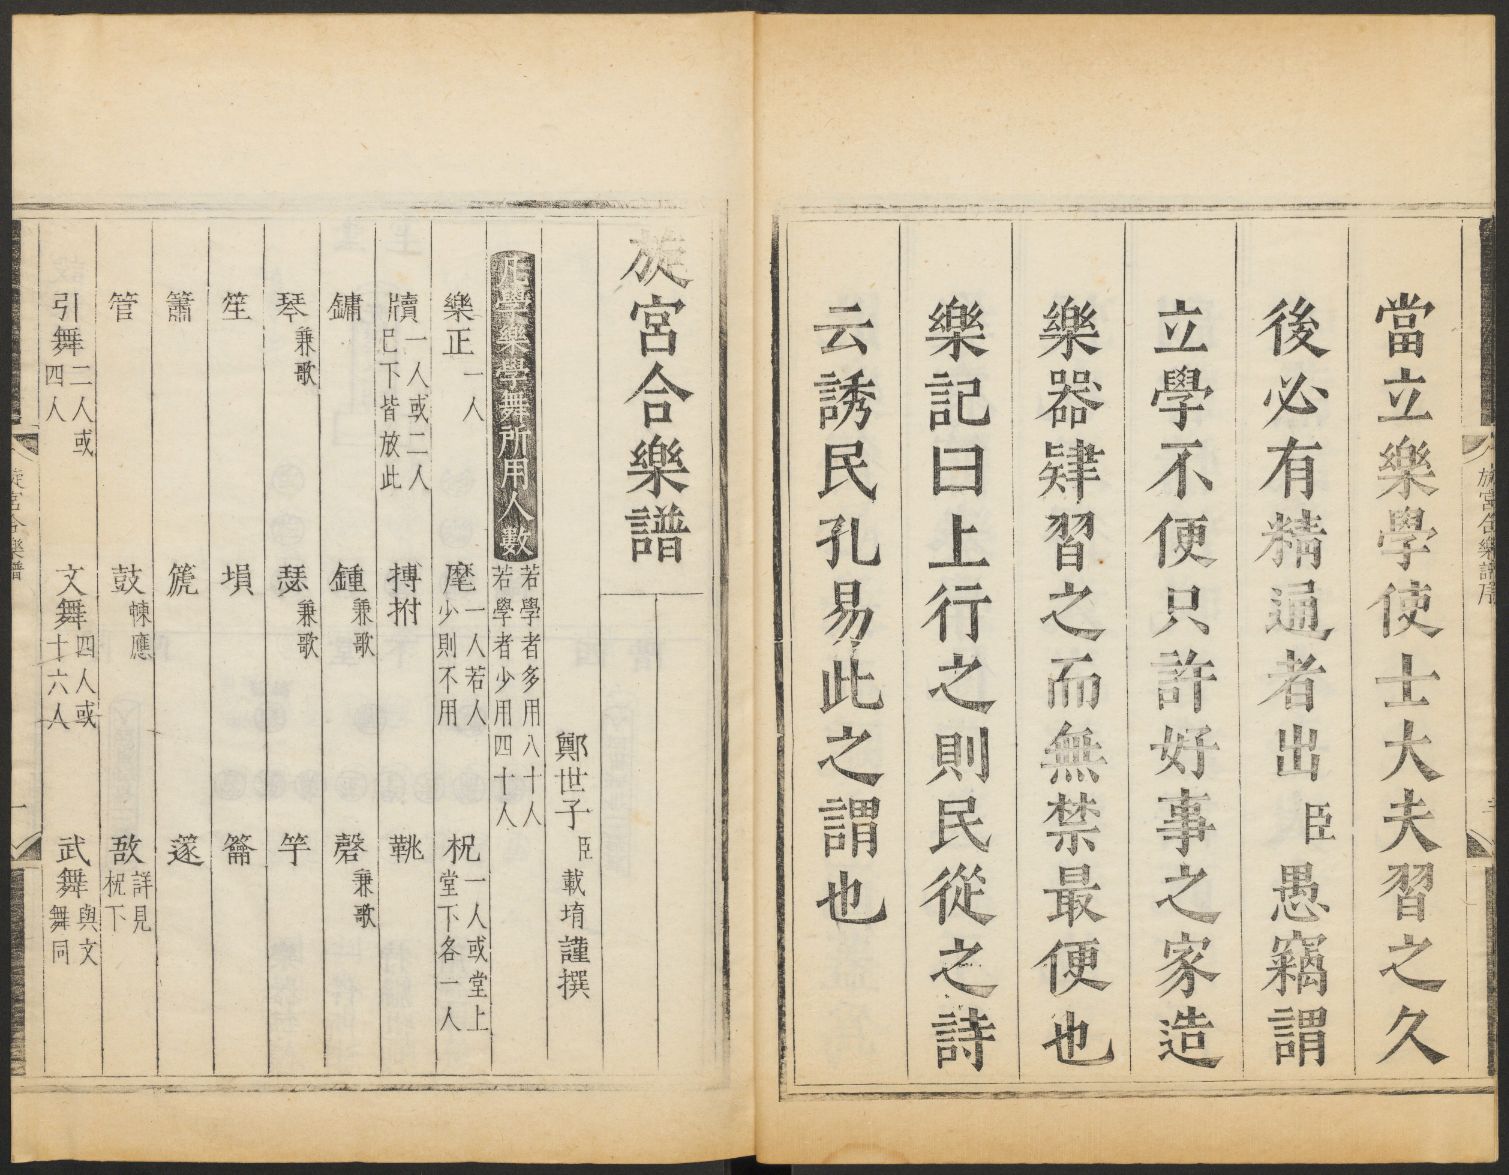 當立樂學使士大夫習之久
後必有精通者出臣愚竊謂
立學不便只許好事之家造
樂器肄習之而無禁最便也
樂記曰上行之則民從之詩
云誘民孔易此之謂也
旋宮合樂譜序
旋宮合樂譜
鄭世子臣載堉謹撰
凡學樂學舞所用人數 若學者多用八十人
若學者少用四十人
樂正 一人 麾 一人若人少則不用 柷 一人或堂上堂下各一人
牘 一人或二人已下皆放此 搏拊 鼗
鏞 鍾 兼歌 磬 兼歌
琴 兼歌 瑟 兼歌 竽
笙 塤 籥
簫 篪 篴
管 鼓 朄應 敔 詳見柷下
引舞 二人或四人 文舞 四人或十六人 武舞 與文舞同
旋宮合樂譜 一